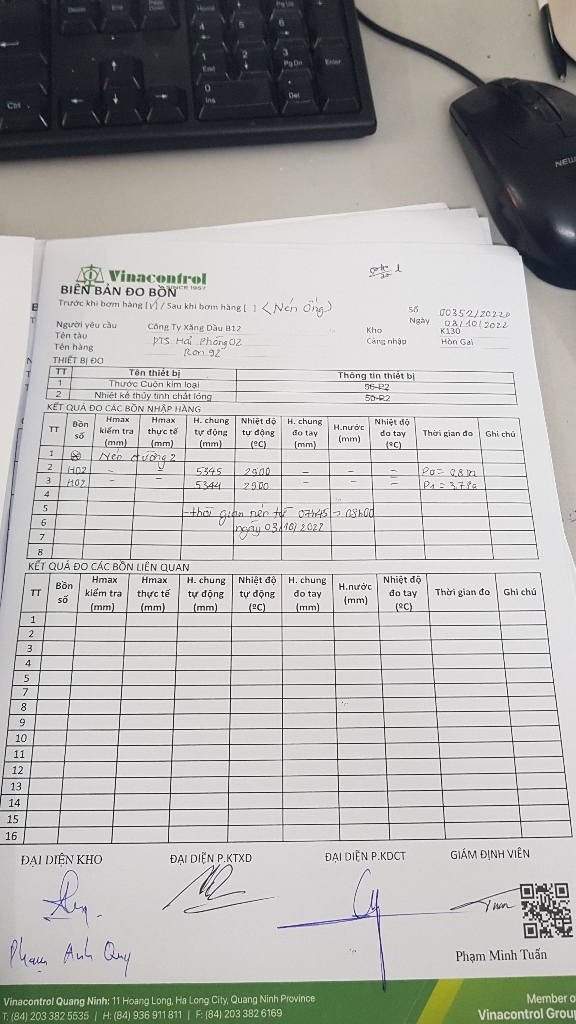 Vinacontrol
SINCE 1957
BIÊN BẢN ĐO BỒN
Trước khi bơm hàng [V] / Sau khi bơm hàng [ ] (Nén Ống)
Số 00352/2022
Ngày 03/10/2022
Người yêu cầu Công Ty Xăng Dầu B12 Kho K130
Tên tàu PTS Hải Phòng 02 Cảng nhập Hòn Gai
Tên hàng Ron 92
THIẾT BỊ ĐO
TT Tên thiết bị Thông tin thiết bị
1 Thước Cuộn kim loại 56-P2
2 Nhiệt kế thủy tinh chất lỏng 50-P2
KẾT QUẢ ĐO CÁC BỒN NHẬP HÀNG
TT Bồn số Hmax kiểm tra (mm) Hmax thực tế (mm) H. chung tự động (mm) Nhiệt độ tự động (ºC) H. chung đo tay (mm) H.nước (mm) Nhiệt độ đo tay (ºC) Thời gian đo Ghi chú
1 Nén đường 2
2 H02 - - 5345 29.00 - - -
3 H02 - - 5344 29.00 - - -
4
5 -thời gian nén từ 07h45 → 08h00
6 ngày 03/10/2022
7
8
KẾT QUẢ ĐO CÁC BỒN LIÊN QUAN
TT Bồn số Hmax kiểm tra (mm) Hmax thực tế (mm) H. chung tự động (mm) Nhiệt độ tự động (ºC) H. chung đo tay (mm) H.nước (mm) Nhiệt độ đo tay (ºC) Thời gian đo Ghi chú
1
2
3
4
5
7
8
9
10
11
12
13
14
15
16
ĐẠI DIỆN KHO ĐẠI DIỆN P.KTXD ĐẠI DIỆN P.KDCT GIÁM ĐỊNH VIÊN
Phạm Anh Quy
Phạm Minh Tuấn
Vinacontrol Quang Ninh: 11 Hoang Long, Ha Long City, Quang Ninh Province
T: (84) 203 382 5535 | H: (84) 936 911 811 | F: (84) 203 382 6169
Member o
Vinacontrol Grou